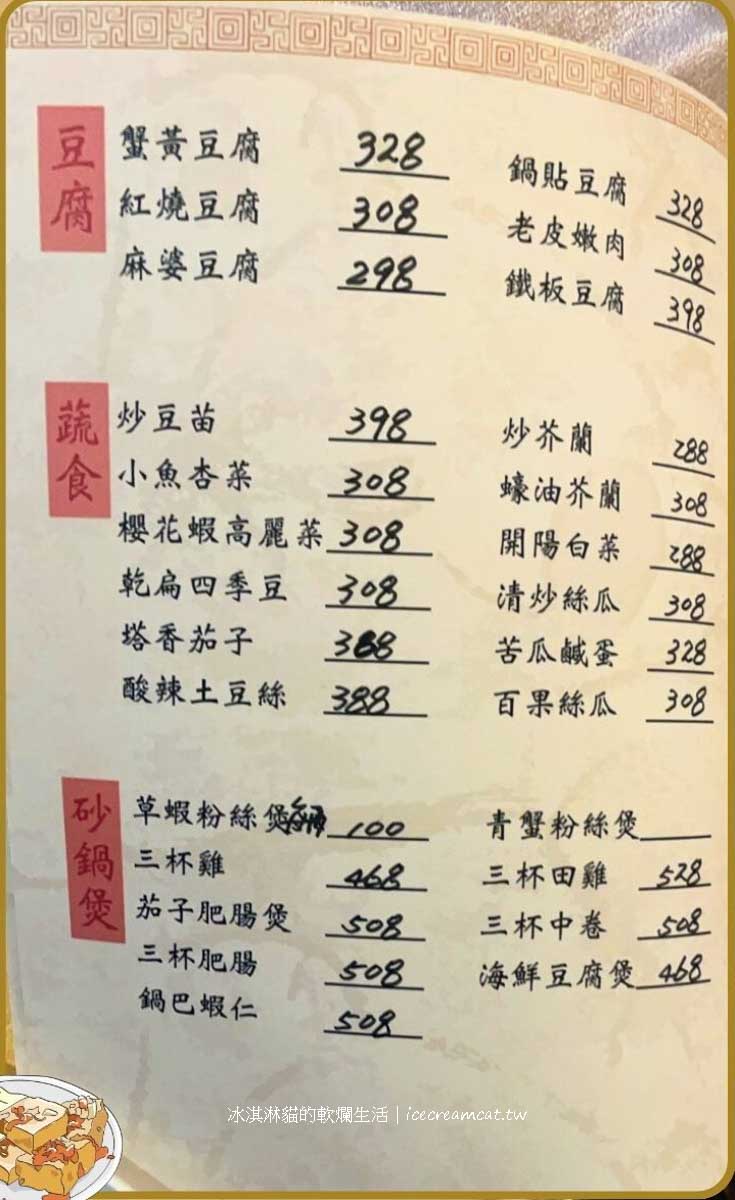 豆腐
蟹黃豆腐 328
紅燒豆腐 308
麻婆豆腐 298
鍋貼豆腐 328
老皮嫩肉 308
鐵板豆腐 398
蔬食
炒豆苗 398
小魚杏菜 308
櫻花蝦高麗菜 308
乾扁四季豆 308
塔香茄子
酸辣土豆絲 388
炒芥蘭 288
蠔油芥蘭 308
開陽白菜 288
清炒絲瓜 308
苦瓜鹹蛋 328
百果絲瓜 308
砂鍋煲
草蝦粉絲煲 100
三杯雞 468
茄子肥腸煲 508
三杯肥腸 508
鍋巴蝦仁 508
青蟹粉絲煲
三杯田雞 528
三杯中卷 508
海鮮豆腐煲 468
冰淇淋貓的軟爛生活｜icecreamcat.tw